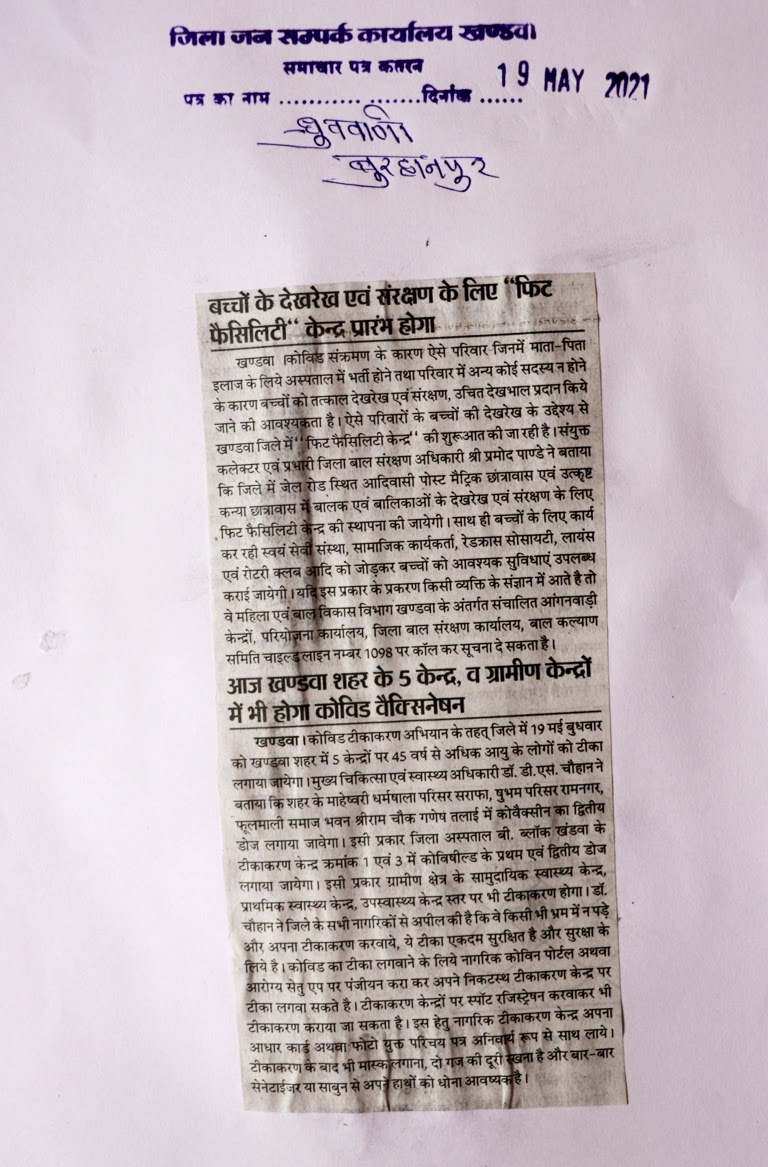 जिला जन सम्पर्क कार्यालय खण्डवा
समाचार पत्र कतरन
पत्र का नाम .................... दिनांक ...... 19 MAY 2021
ध्रुववाणी
बुरहानपुर
बच्चों के देखरेख एवं संरक्षण के लिए "फिट
फैसिलिटी" केन्द्र प्रारंभ होगा
खण्डवा ।कोविड संक्रमण के कारण ऐसे परिवार जिनमें माता-पिता
इलाज के लिये अस्पताल में भर्ती होने तथा परिवार में अन्य कोई सदस्य न होने
के कारण बच्चों को तत्काल देखरेख एवं संरक्षण, उचित देखभाल प्रदान किये
जाने की आवश्यकता है। ऐसे परिवारों के बच्चों की देखरेख के उद्देश्य से
खण्डवा जिले में "फिट फैसिलिटी केन्द्र" की शुरूआत की जा रही है। संयुक्त
कलेक्टर एवं प्रभारी जिला बाल संरक्षण अधिकारी श्री प्रमोद पाण्डे ने बताया
कि जिले में जेल रोड स्थित आदिवासी पोस्ट मैट्रिक छात्रावास एवं उत्कृष्ट
कन्या छात्रावास में बालक एवं बालिकाओं के देखरेख एवं संरक्षण के लिए
फिट फैसिलिटी केन्द्र की स्थापना की जायेगी। साथ ही बच्चों के लिए कार्य
कर रही स्वयं सेवी संस्था, सामाजिक कार्यकर्ता, रेडक्रास सोसायटी, लायंस
एवं रोटरी क्लब आदि को जोड़कर बच्चों को आवश्यक सुविधाएं उपलब्ध
कराई जायेगी। यदि इस प्रकार के प्रकरण किसी व्यक्ति के संज्ञान में आते है तो
वे महिला एवं बाल विकास विभाग खण्डवा के अंतर्गत संचालित आंगनवाड़ी
केन्द्रों, परियोजना कार्यालय, जिला बाल संरक्षण कार्यालय, बाल कल्याण
समिति चाइल्ड लाइन नम्बर 1098 पर कॉल कर सूचना दे सकता है।
आज खण्डवा शहर के 5 केन्द्र, व ग्रामीण केन्द्रों
में भी होगा कोविड वैक्सिनेषन
खण्डवा। कोविड टीकाकरण अभियान के तहत् जिले में 19 मई बुधवार
को खण्डवा शहर में 5 केन्द्रों पर 45 वर्ष से अधिक आयु के लोगों को टीका
लगाया जायेगा। मुख्य चिकित्सा एवं स्वास्थ्य अधिकारी डॉ. डी.एस. चौहान ने
बताया कि शहर के माहेष्वरी धर्मषाला परिसर सराफा, षुभम परिसर रामनगर,
फूलमाली समाज भवन श्रीराम चौक गणेष तलाई में कोवैक्सीन का द्वितीय
डोज लगाया जावेगा। इसी प्रकार जिला अस्पताल बी. ब्लॉक खंडवा के
टीकाकरण केन्द्र क्रमांक 1 एवं 3 में कोविषील्ड के प्रथम एवं द्वितीय डोज
लगाया जायेगा। इसी प्रकार ग्रामीण क्षेत्र के सामुदायिक स्वास्थ्य केन्द्र,
प्राथमिक स्वास्थ्य केन्द्र, उपस्वास्थ्य केन्द्र स्तर पर भी टीकाकरण होगा। डॉ.
चौहान ने जिले के सभी नागरिकों से अपील की है कि वे किसी भी भ्रम में न पड़े
और अपना टीकाकरण करवाये, ये टीका एकदम सुरक्षित है और सुरक्षा के
लिये है। कोविड का टीका लगवाने के लिये नागरिक कोविन पोर्टल अथवा
आरोग्य सेतु एप पर पंजीयन करा कर अपने निकटस्थ टीकाकरण केन्द्र पर
टीका लगवा सकते है। टीकाकरण केन्द्रों पर स्पॉट रजिस्ट्रेषन करवाकर भी
टीकाकरण कराया जा सकता है। इस हेतु नागरिक टीकाकरण केन्द्र अपना
आधार कार्ड अथवा फोटो युक्त परिचय पत्र अनिवार्य रूप से साथ लाये।
टीकाकरण के बाद भी मास्क लगाना, दो गज की दूरी रखना है और बार-बार
सेनेटाईजर या साबुन से अपने हाथों को धोना आवष्यक है।